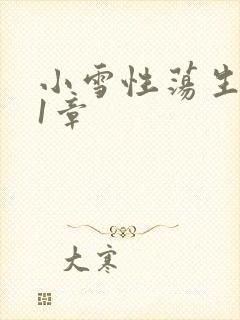 小雪性荡生
1章
大寒